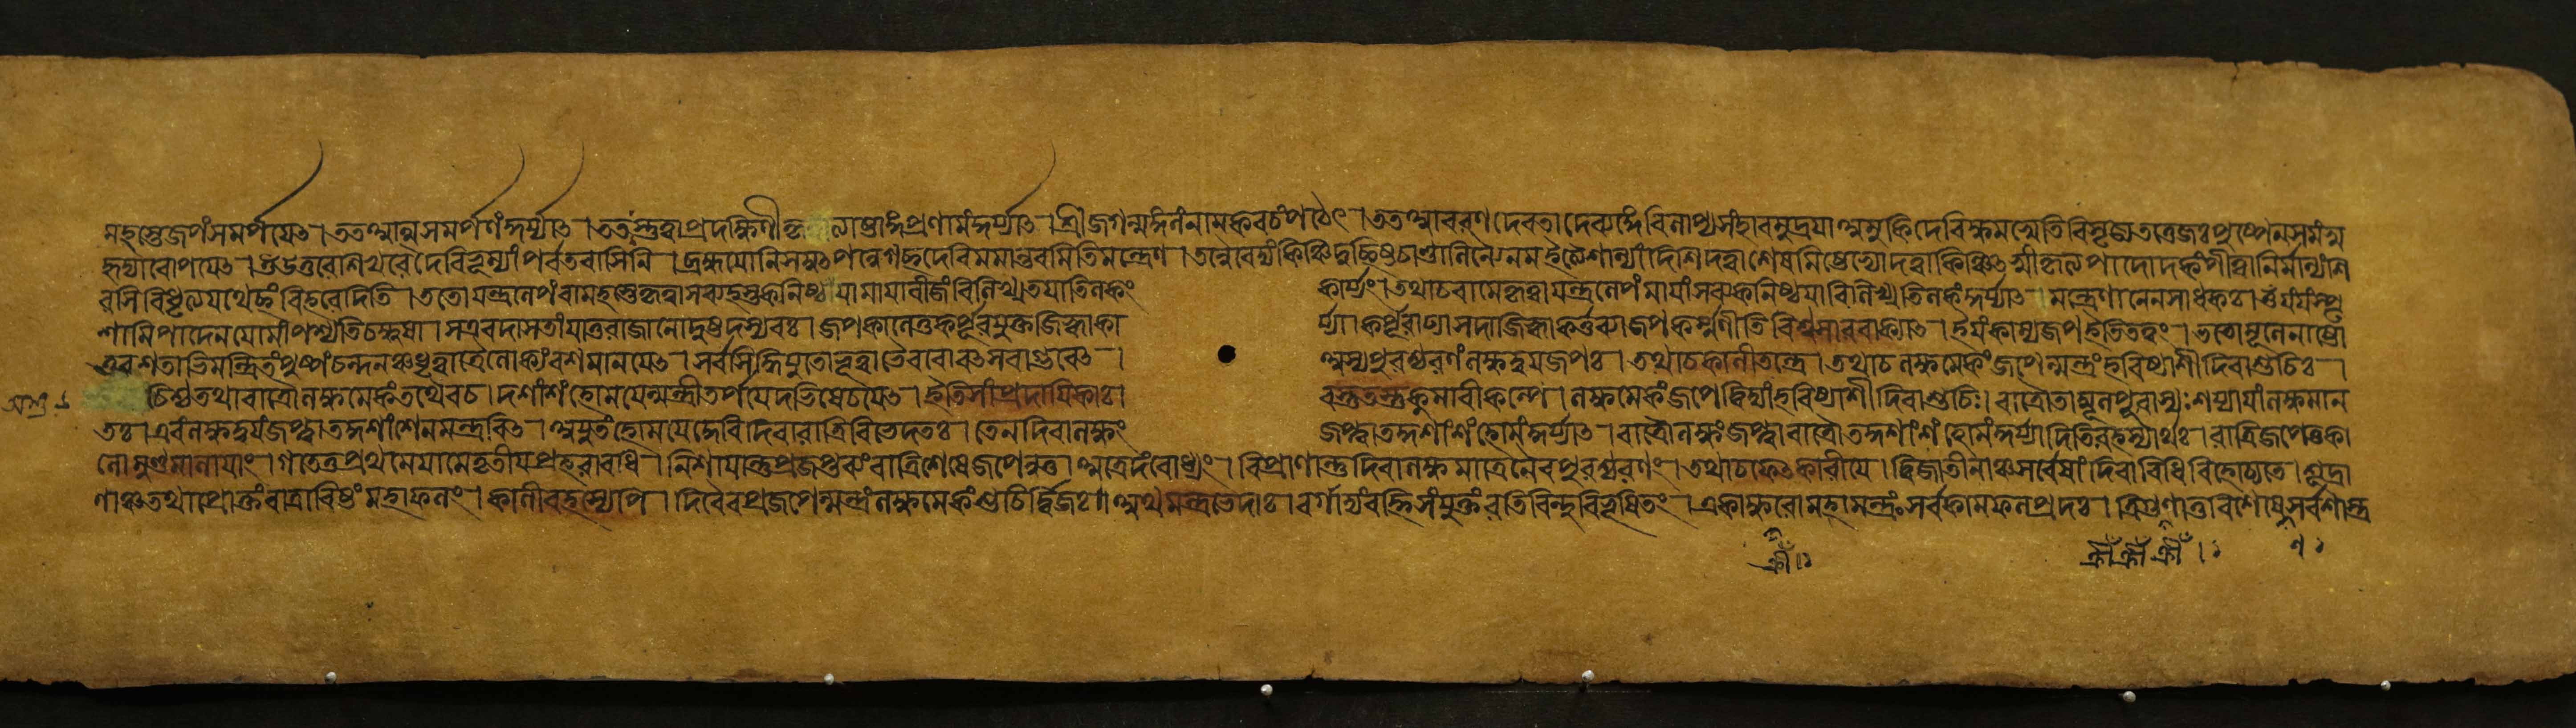 মহস্তে জপং সমর্পয়েৎ । তত আত্মসমর্পণং কুর্য্যাৎ । ততস্তুত্বা প্রদক্ষিণীকৃত্য সাষ্টাঙ্গপ্রণামং কুর্য্যাৎ । শ্রীজগন্মঙ্গলং নাম কবচং পঠেৎ । তত আবরণদেবতা দেব্যঙ্গে বিলাপ্য সংহারমুদ্রয়া দেবি ক্ষমস্বেতি বিসৃজ্য তত্তেজঃ পুষ্পেণ সমং স্ব
হৃদ্যারোপয়েৎ । উত্তরে শিখরে দেবি ভূম্যাং পর্বতবাসিনি । ব্রহ্মযোনিসমুৎপন্নে গচ্ছ দেবি মমান্তরমিতি মন্ত্রেণ । তন্নৈবেদ্যং কিঞ্চিদুচ্ছিষ্টচাণ্ডালিন্যৈ নম ইত্যৈশান্যাং দিশি দত্বা শেষমিষ্টেভ্যো দত্বা কিঞ্চিৎ স্বীকৃত্য পাদোদকং পীত্বা নির্মাল্যং শি
রসি বিধৃত্য যথেচ্ছং বিহরেদিতি । ততো যন্ত্রলেপং বামহস্তে কৃত্বা সব্যহস্তকনিষ্ঠয়া মায়াবীজং বিলিখ্য তয়া তিলকং কার্য্যং । তথা চ বামে কৃত্বা যন্ত্রলেপং মায়াং সব্যকনিষ্ঠয়া বিলিখ্য তিলকং কুর্য্যাৎ । মন্ত্রেণানেন সাধকঃ । ওঁ যং যং স্পৃ
শামি পাদেন যো মাং পশ্যতি চক্ষুষা । স এব দাসতাং যাতু রাজানো দুষ্টদস্যবঃ । জপকালে তু কর্পূরযুক্তজিহ্বা কা র্য্যা । কর্পূরাঢ্যা সদা জিহ্বা কর্ত্তব্যা জপকর্ম্মণীতি বিশ্বসারবাক্যাৎ । ইয়ং কাম্যজপ ইতি তত্ত্বং ।
ত্তরশতাভিমন্ত্রিতং পুষ্পং চন্দনঞ্চ ধৃত্বা ত্রৈলোক্যং বশমানয়েৎ । সর্বসিদ্ধিযুতো ভূত্বা ভৈরবো বৎসরাদ্ভবেৎ । অস্য পুরশ্চরণং লক্ষদ্বয়জপঃ । তথা চ কালীতন্ত্রে । তথা চ লক্ষমেকং জপেন্মন্ত্রং হবিষ্যাশী দিবা শুচিঃ ।
চিশ্চ তথা রাত্রৌ লক্ষমেকং তথৈব চ । দশাংশং হোময়েন্মন্ত্রী তর্পয়েদভিষেচয়েৎ । ইতি সাংপ্রদায়িকাঃ । বস্তুতস্তু কুমারীকল্পে । লক্ষমেকং জপেদ্বিদ্যাং হবিষ্যাশী দিবা শুচিঃ । রাত্রৌ তাম্বূলপূরাস্যঃ শয্যায়াং লক্ষমান
তঃ । এবং লক্ষদ্বয়ং জপ্ত্বা তদ্দশাংশেন মন্ত্রবিৎ । অযুতং হোময়েদ্দেবি দিবারাত্রিবিভেদতঃ । তেন দিবা লক্ষং জপ্ত্বা তদ্দশাংশং হোমং কুর্য্যাৎ । রাত্রৌ লক্ষং জপ্ত্বা রাত্রৌ তদ্দশাংশং হোমং কুর্য্যাদিতি রহস্যার্থঃ । রাত্রিজপে তু কা
লো মুণ্ডমালায়াং । গতে তু প্রথমে যামে তৃতীয়প্রহরাবধি । নিশায়ান্তু প্রজপ্তব্যং রাত্রিশেষে জপেন্ন তু । অত্রেদং বোধ্যং । বিপ্রাণান্তু দিবা লক্ষমাত্রেণৈব পুরশ্চরণং । তথা চ ফেৎকারীয়ে । দ্বিজাতীনাঞ্চ সর্বেষাং দিবা বিধিরিহোচ্যতে । শূদ্রা
ণাঞ্চ তথা প্রোক্তং রাত্রাবিষ্টং মহাফলং । কালীরহস্যেপি । দিবৈব প্রজপেন্মন্ত্রং লক্ষমেকং শুচির্দ্বিজঃ । অথ মন্ত্রভেদাঃ । বর্গাদ্যং বহ্নিসংযুক্তং রতিবিন্দুবিভূষিতং । একাক্ষরো মহামন্ত্রঃ সর্বকামফলপ্রদঃ । ত্রিগুণা তু বিশেষেণ সর্বশাস্ত্র
ক্রীঁ ।
ক্রীঁ ক্রীঁ ক্রীঁ ।